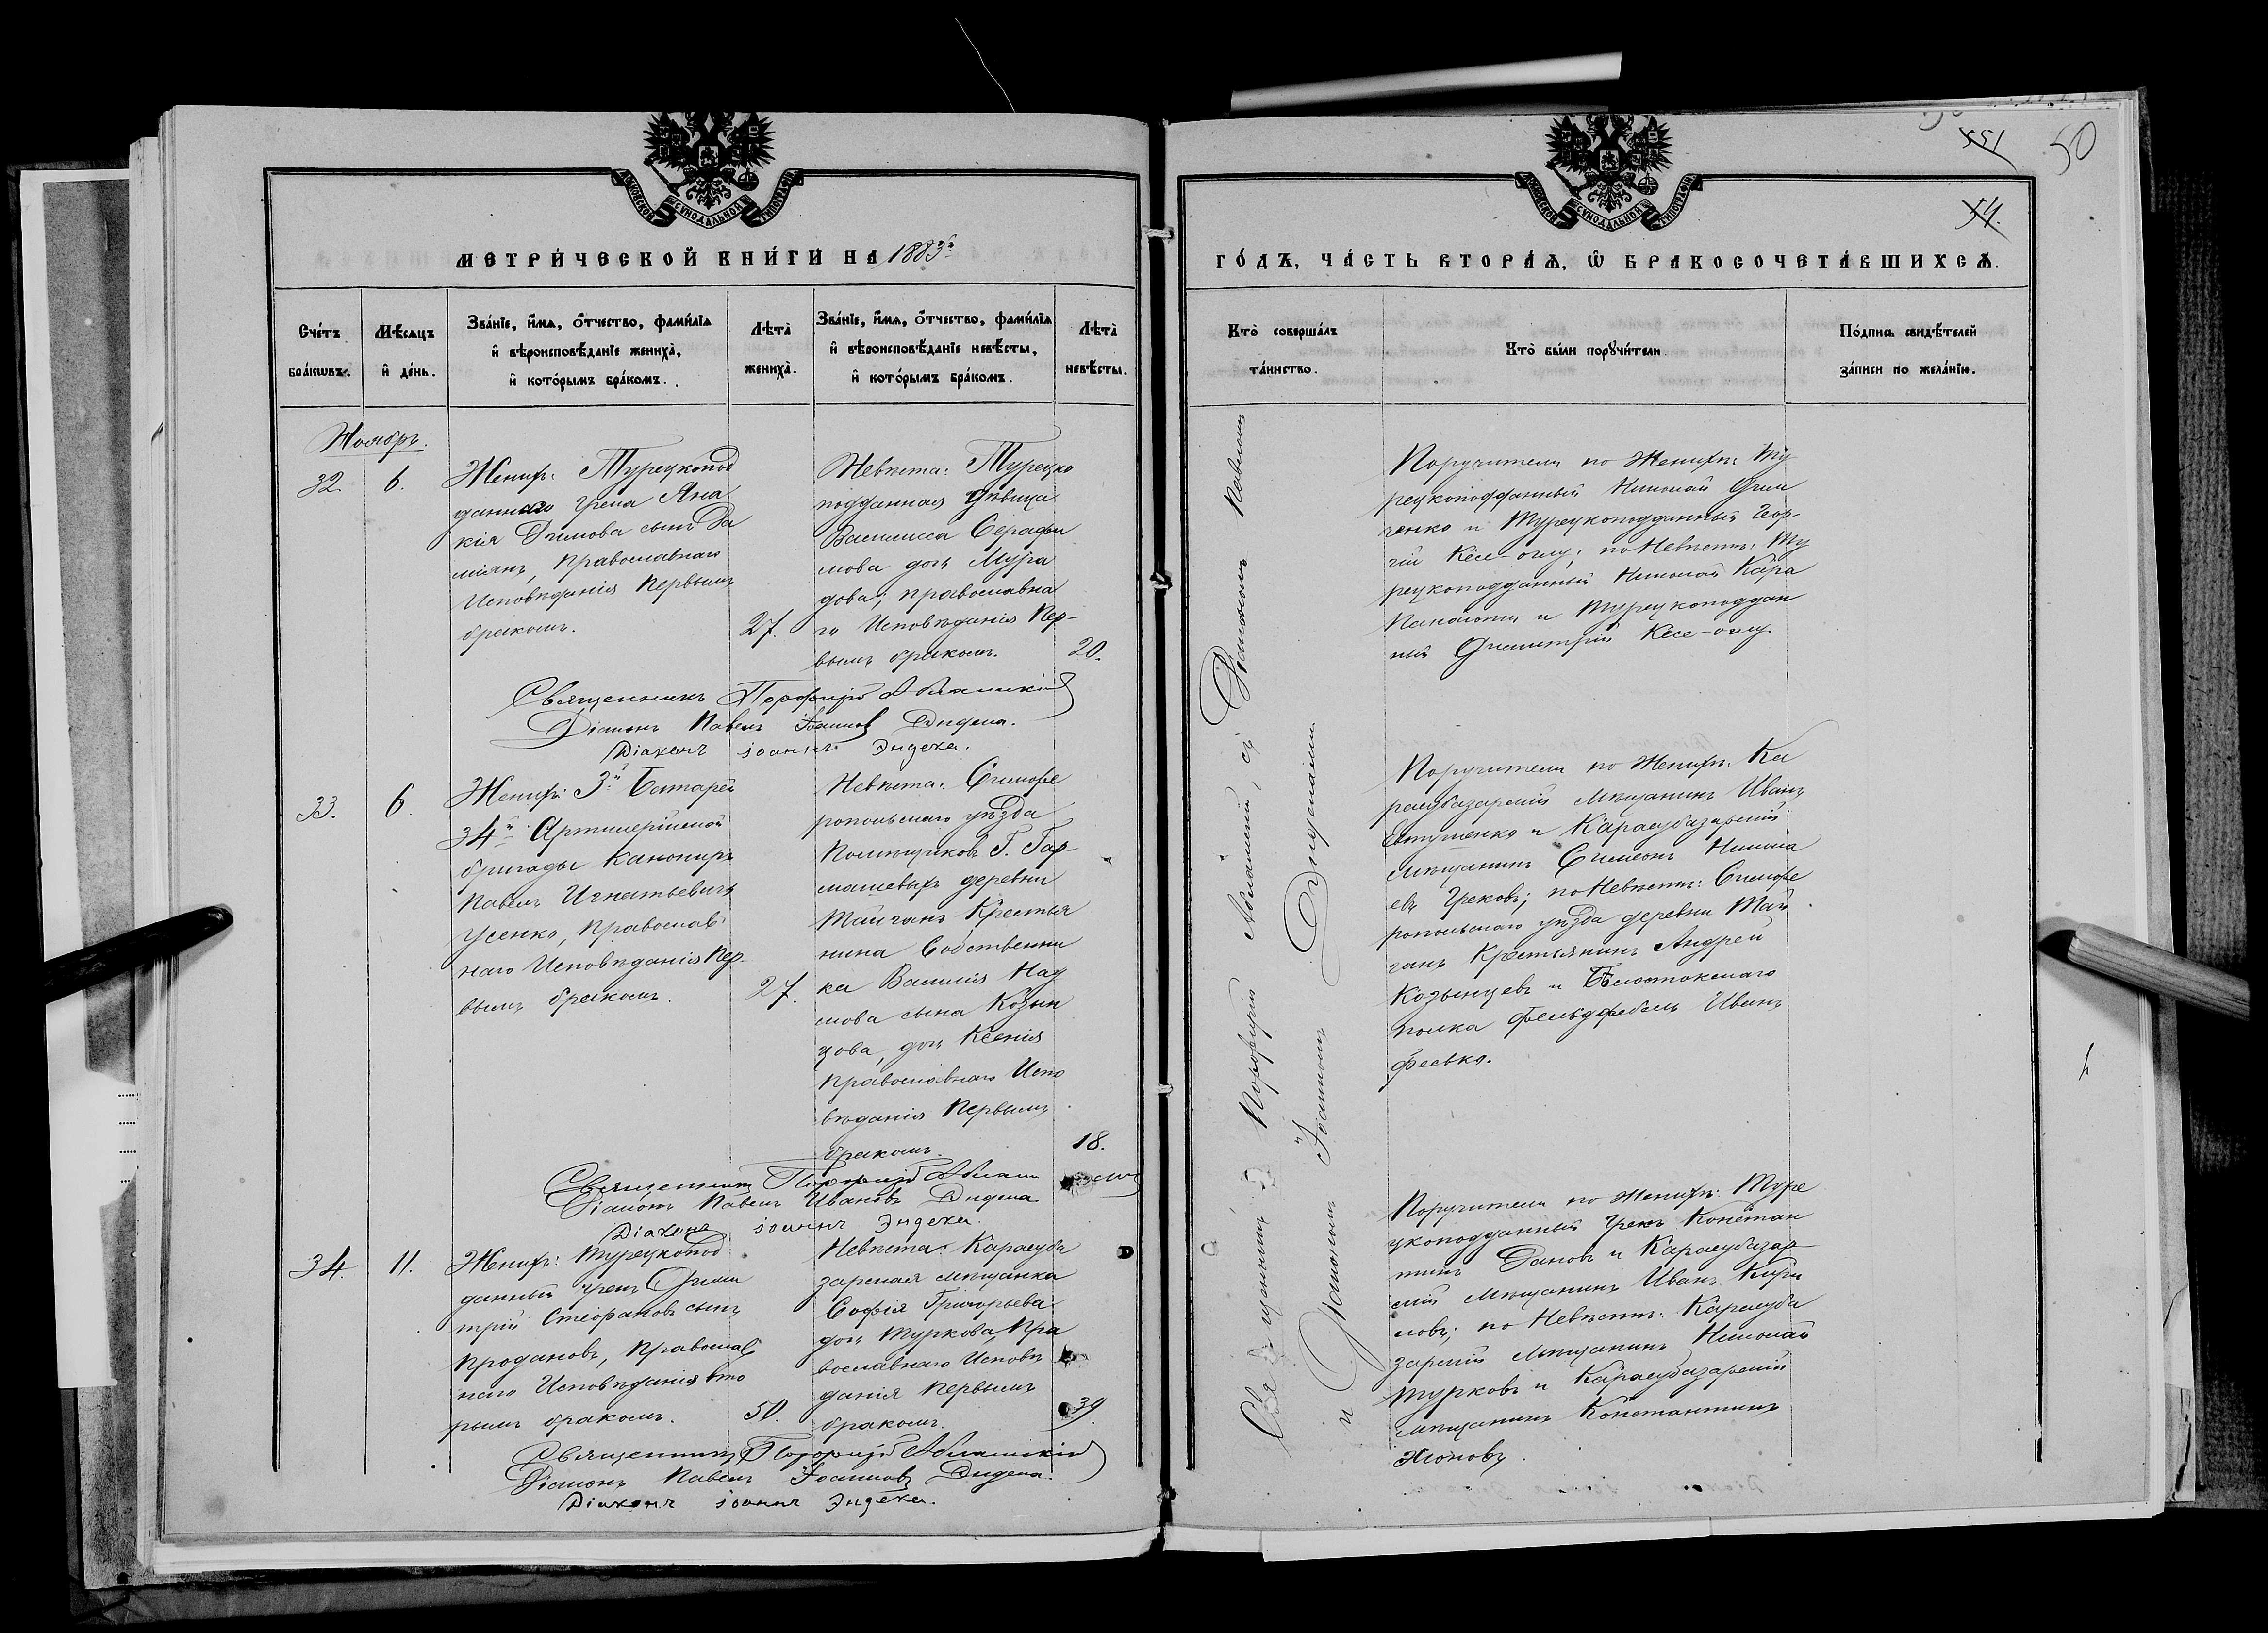 МОСКОВСКОЙ СѴНОДАЛЬНОЙ ТИПОГРАФІИ
МЕТРИЧЕСКОЙ КНИГИ НА 1883й
Счетъ браковъ.
Мѣсяцъ и день.
Званіе, имя, отчество, фамилія
и вѣроисповѣданіе жениха,
и которымъ бракомъ.
Лѣта
жениха.
Званіе, имя, отчество, фамилія
и вѣроисповѣданіе невѣсты,
и которымъ бракомъ.
Лѣта
невѣсты.
Ноябрь.
32.
6.
Женихъ: Турецкопод
даннаго грека Яна
кія Димова сынъ Да
міянъ, Православнаго
Исповѣданія первымъ
бракомъ.
27.
Невѣста: Турецко
подданная дѣвица
Василиса Серафи
мова дочь Мура
дова; православна
го Исповѣданія Пер-
вымъ бракомъ.
20.
Священникъ Порфирій
Діаконъ Павелъ Іоанновъ Диденко.
Діаконъ Іоаннъ Эндека.
33.
6.
Женихъ: 3й Батареи
34й Артиллерійской
бригады Канониръ
Павелъ Игнатьевичъ
Усенко, Православ
наго Исповѣданія Пер-
вымъ бракомъ.
27.
Невѣста: Симфе
ропольскаго уѣзда
Помѣщиковъ Г. Гар-
деревни
Тайганъ Крестья
нина Собственни
ка Василія
сына Козын
цова, дочь Ксенія
православнаго Испо
вѣданія Первымъ
бракомъ.
18.
Священникъ Порфирій
Діаконъ Павелъ Ивановъ
Діаконъ Іоаннъ Эндека.
34.
11.
Женихъ: Турецкопод
данный грекъ Дими
трій Стефановъ сынъ
Продановъ, Православ
наго Исповѣданія вто
рымъ бракомъ.
50.
Невѣста: Карасуба
зарская мѣщанка
Софія Григорьева
дочь Туркова, Пра
вославнаго Исповѣ
данія Первымъ
бракомъ.
39.
Священникъ Порфирій
Діаконъ Павелъ Іоанновъ
Діаконъ Іоаннъ Эндека.
551
50
54.
МОСКОВСКОЙ СѴНОДАЛЬНОЙ ТИПОГРАФІИ
ГОДЪ, ЧАСТЬ ВТОРАЯ, Ѡ БРАКОСОЧЕТАВШИХСЯ.
Кто совершалъ
таинство.
Кто были поручители.
Подпись свидѣтелей
записи по желанію.
Священникъ Порфирій, съ Діакономъ Павломъ
и Діакономъ Іоанномъ
Поручители по Женихѣ: Ту
рецкоподданный Николай Дим
ченко и Турецкоподданный Геор-
гій Кесе-оглу; по Невѣстѣ: Ту
рецкоподданный Николай Кара
Панаіоти и Турецкоподдан
ный Димитрій Кесе-оглу.
Поручители по Женихѣ: Ка
расубазарскій Мѣщанинъ Иванъ
Евтушенко и Карасубазарскій
Мѣщанинъ Симеонъ Никола
евъ Грековъ; по Невѣстѣ: Симфе
ропольскаго уѣзда деревни Тай
ганъ Крестьянинъ Андрей
Козынцевъ и Бѣлостокскаго
полка Фельдфебель Иванъ
Феська.
Поручители по Женихѣ: Туре
цкоподданный Грекъ Констан
тинъ Дановъ и Карасубазар-
скій Мѣщанинъ Иванъ Кири
ловъ; по Невѣстѣ: Карасуба
зарскій Мѣщанинъ Николай
Турковъ и Карасубазарскій
мѣщанинъ Константинъ
Хіоновъ.